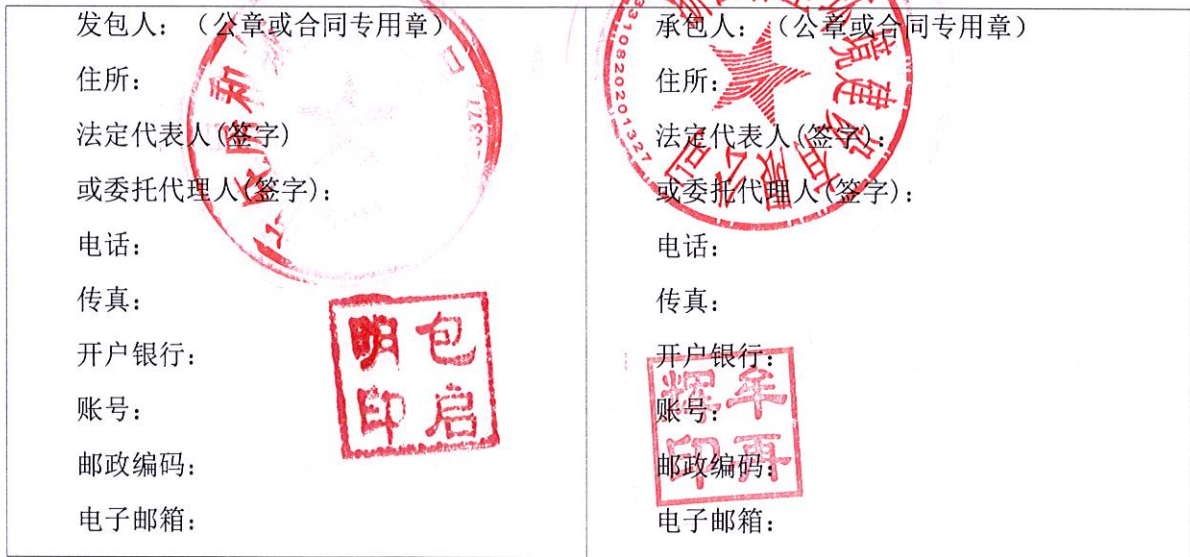 发包人：（公章或合同专用章）
住所：
法定代表人(签字)
或委托代理人(签字)：
电话：
传真：
开户银行：
账号：
邮政编码：
电子邮箱：
包启明印
承包人：（公章或合同专用章）
住所：
法定代表人(签字)：
或委托代理人(签字)：
电话：
传真：
开户银行：
账号：
邮政编码：
电子邮箱：
境建设有限公司
3310820201327
牟再辉印